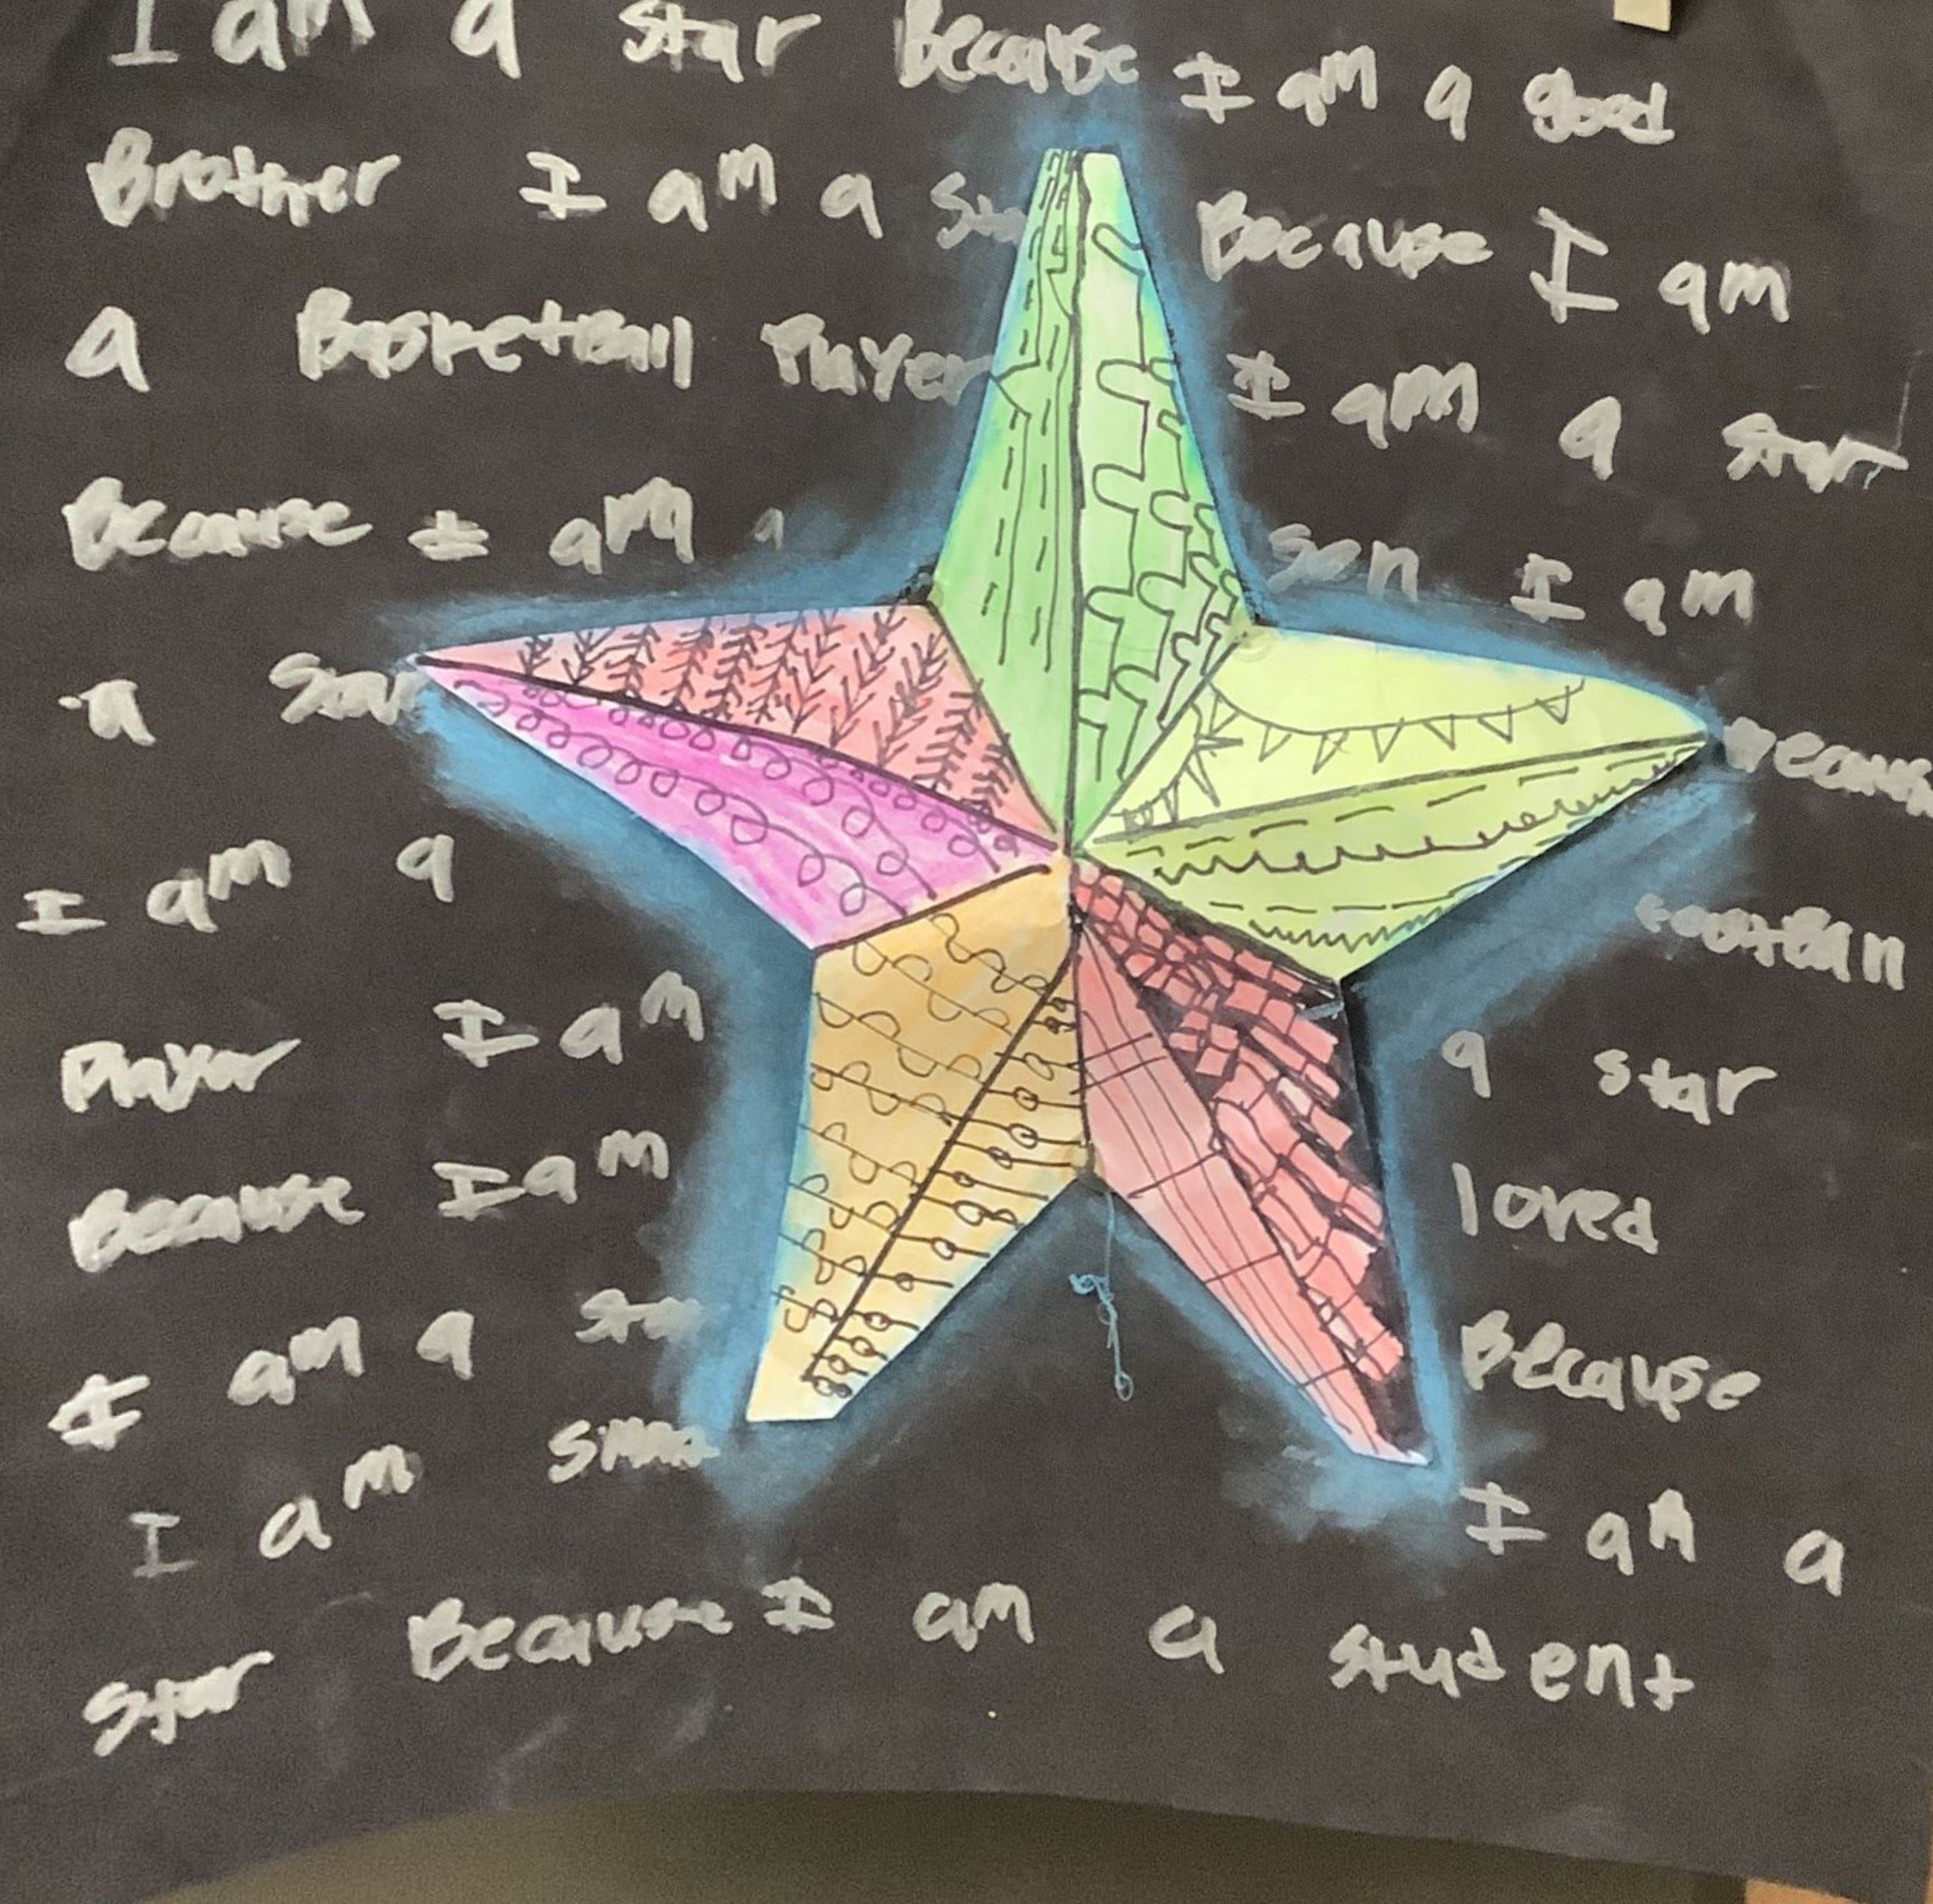 I am a star Because I am a good
Brother I am a Star Because I am
a Basketball Player I am a star
Because I am a son I am
a Star Because
I am a
Player I am a star
Because I am loved
I am a star Because
I am I am a
Star Because I am a student